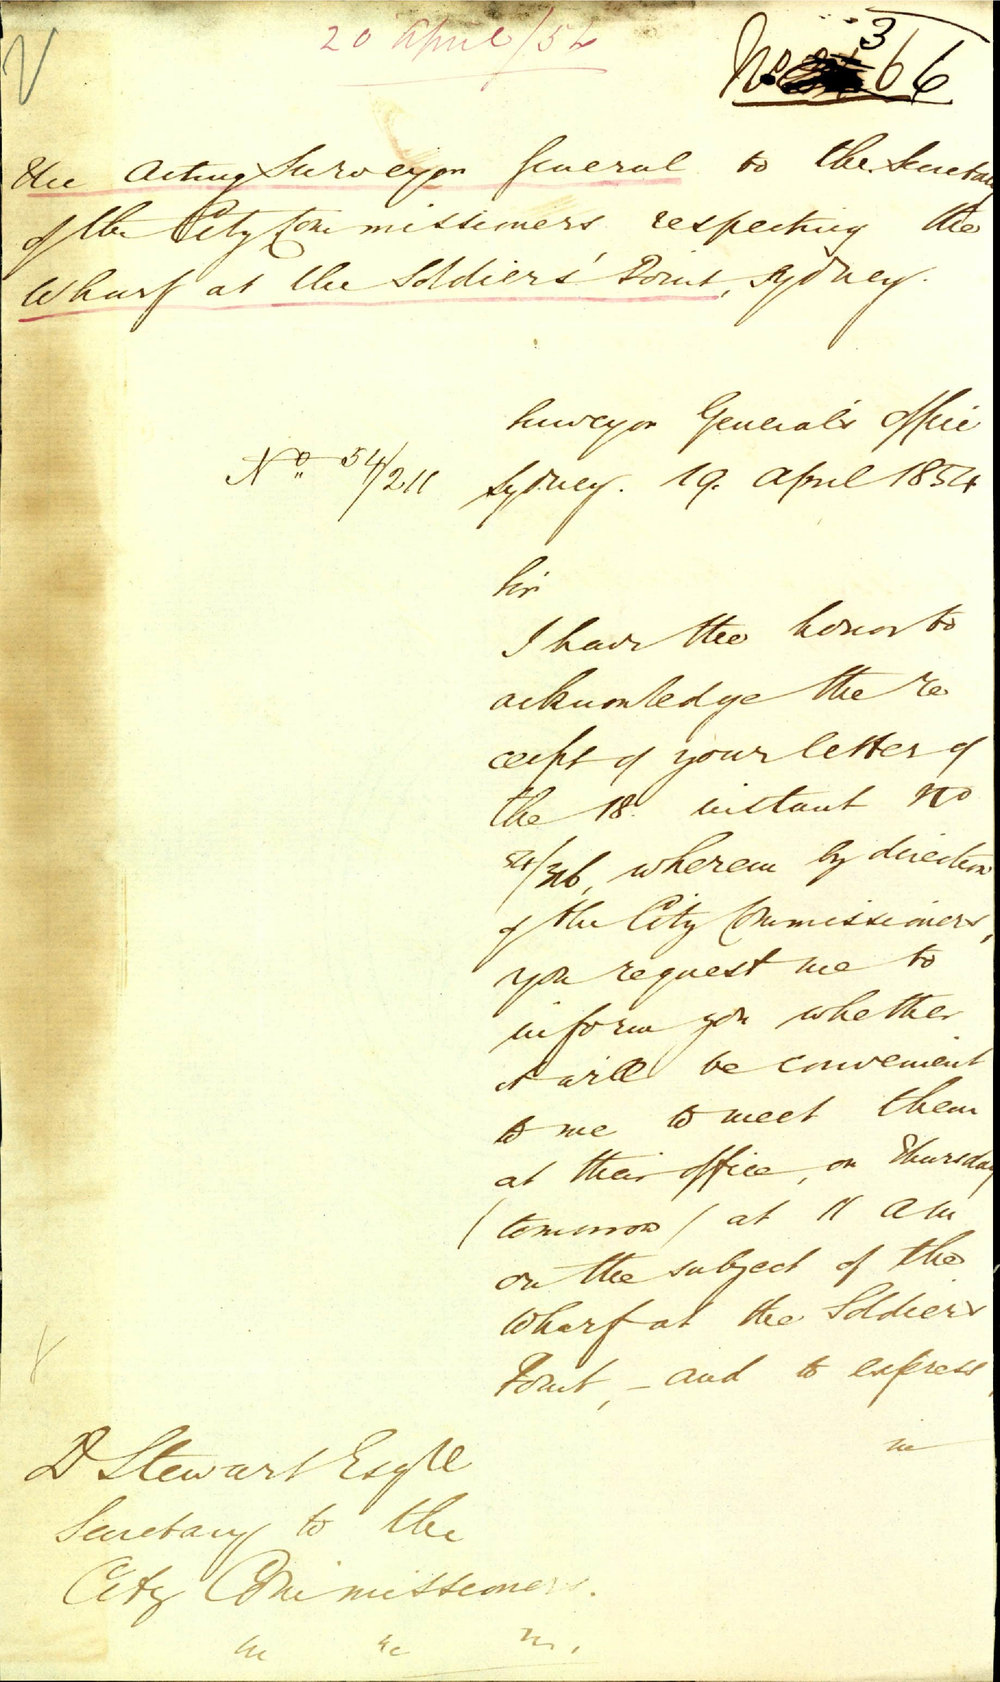 20 April/54
No 366
The Acting Surveyor General to the Secretary
of the City Commissioners, respecting the
Wharf at the Soldiers' Point, Sydney.
Surveyor General's Office
No 54/211 Sydney. 19. April 1854
Sir
I have the honor to
acknowledge the re
ceipt of your letter of
the 18. instant No
54/316, wherein by direction
of the City Commissioners,
you request me to
inform you whether
it will be convenient
to me to meet them
at their office, on Thursday
(tomorrow) at 11 am
on the subject of the
Wharf at the Soldiers
Point, - and to express,
D Stewart Esqre
Secretary to the
City Commissioners.